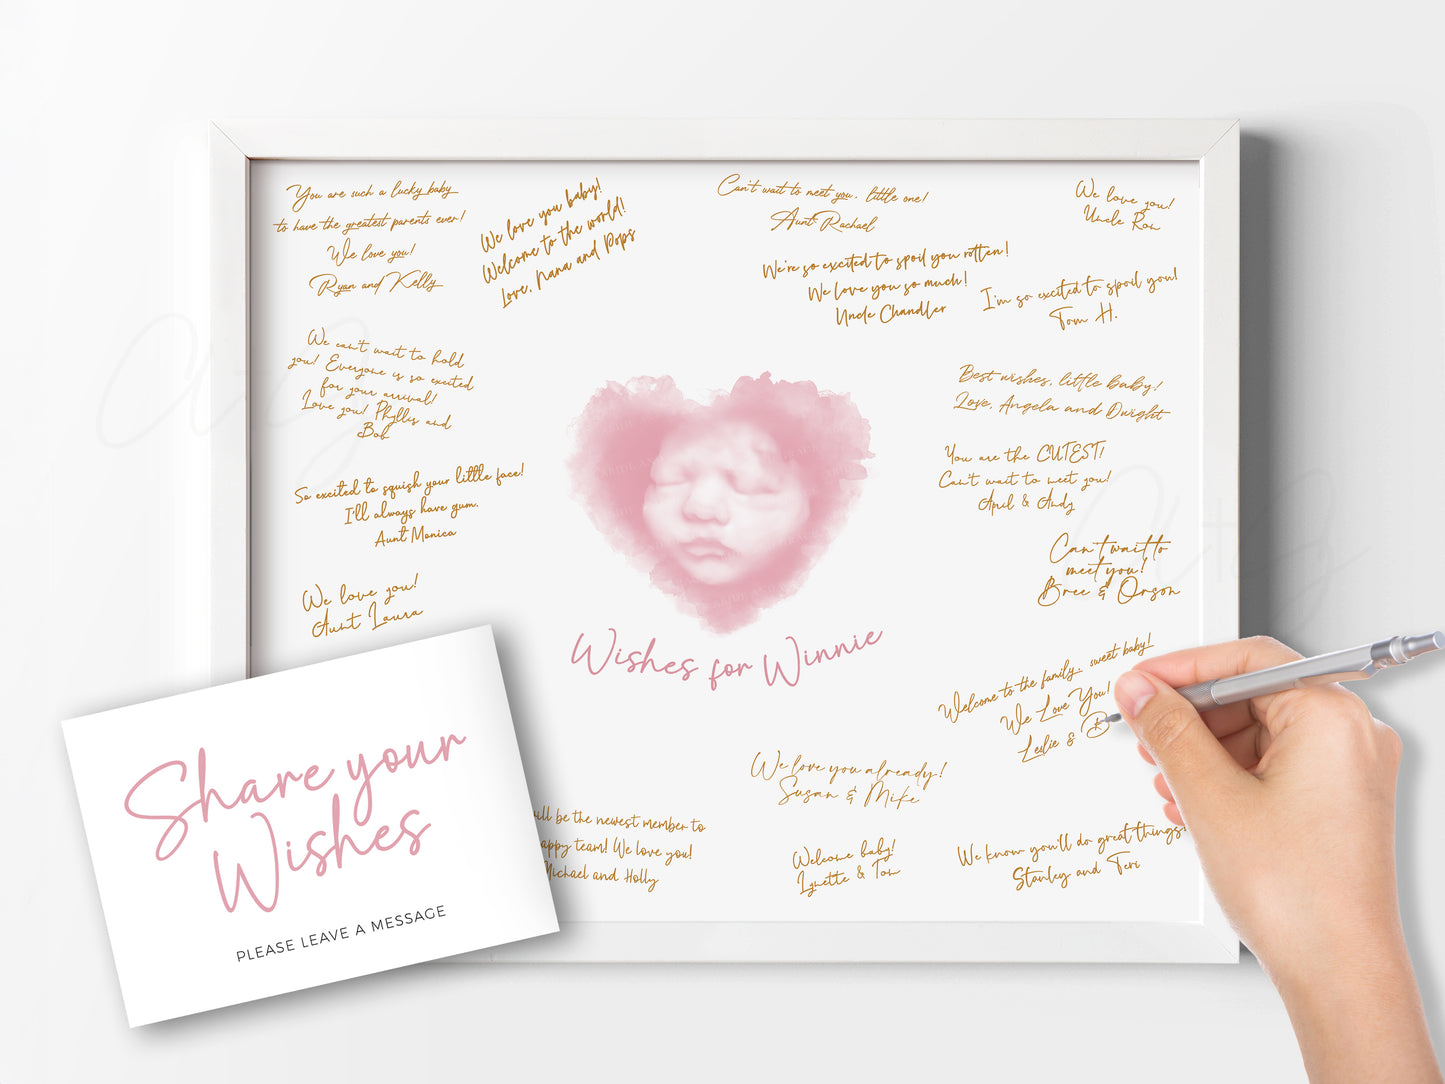 You are such a lucky baby
to have the greatest parents ever!
We love you!
Ryan and Kelly
We love you baby!
Welcome to the world!
Love, Nana and Pops
Can't wait to meet you, little one!
Aunt Rachael
We love you!
Uncle Ron
We're so excited to spoil you rotten!
We love you so much!
Uncle Chandler
I'm so excited to spoil you!
Tom H.
We can't wait to hold
you! Everyone is so excited
for your arrival!
Love you! Phyllis and
Bob
Best wishes, little baby!
Love, Angela and Dwight
You are the CUTEST!
Can't wait to meet you!
April & Andy
So excited to squish your little face!
I'll always have gum.
Aunt Monica
Can't wait to
meet you!
Bree & Orson
We love you!
Aunt Laura
Wishes for Winnie
Welcome to the family, sweet baby!
We Love You!
Leslie & B
We love you already!
Susan & Mike
be the newest member to
team! We love you!
Michael and Holly
Welcome baby!
Lynette & Tom
We know you'll do great things!
Stanley and Teri
Share your
Wishes
PLEASE LEAVE A MESSAGE